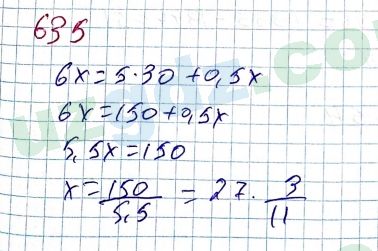 635
6x = 5·30 + 0,5x
6x = 150 + 0,5x
5,5x = 150
x = 150/5,5 = 27·3/11